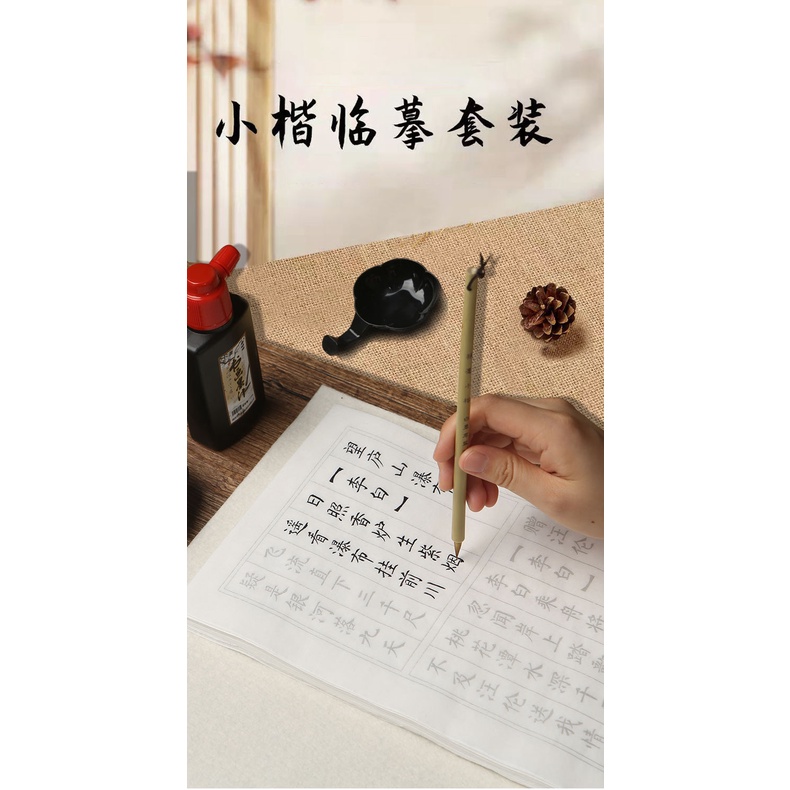 小楷临摹套装
望庐山瀑
【李白】
日照香炉生紫烟
遥看瀑布挂前川
飞流直下三千尺
疑是银河落九天
赠汪伦
【李白】
李白乘舟将
忽闻岸上踏
桃花潭水深千
不及汪伦送我情